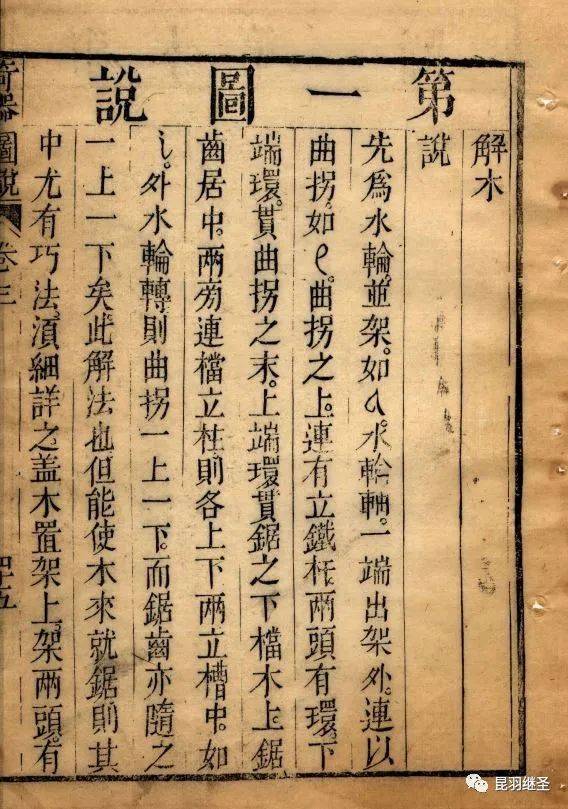 第一圖說
解木
說
先爲水輪並架。如a。水輪軸。一端出架外。連以
曲拐。如e。曲拐之上。連有立鐵杠。兩頭有環。下
端環。貫曲拐之末。上端環貫鋸之下檔木上。鋸
齒居中。兩旁連檔立柱則各上下兩立槽中。如
i。外水輪轉則曲拐一上一下。而鋸齒亦隨之
一上一下矣。此解法也但能使木來就鋸則其
中尤有巧法。湏細詳之盖木置架上。架兩頭。有
奇器圖說 卷三 四十五
昆羽继圣